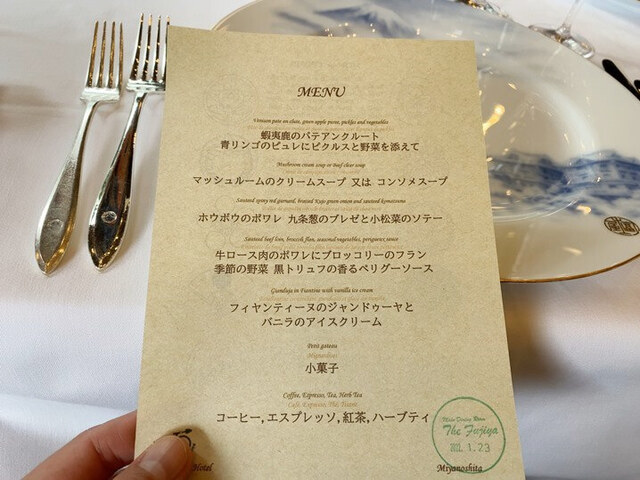 MENU
Venison pate en clute, green apple puree, pickles and vegetables
蝦夷鹿のパテアンクルート
青リンゴのピュレにピクルスと野菜を添えて
Mushroom cream soup or Beef clear soup
マッシュルームのクリームスープ 又は コンソメスープ
Sauteed spiny red gurnard, braised Kujo green onion and sauteed Komatsuna
ホウボウのポワレ 九条葱のブレゼと小松菜のソテー
Sauteed beef loin, broccoli flan, seasonal vegetables, perigueux sauce
牛ロース肉のポワレにブロッコリーのフラン
季節の野菜 黒トリュフの香るペリグーソース
Gianduja in Fiantine with vanilla ice cream
フィヤンティーヌのジャンドゥーヤと
バニラのアイスクリーム
Petit gateau
Mignardises
小菓子
Coffee, Espresso, Tea, Herb Tea
コーヒー, エスプレッソ, 紅茶, ハーブティ
Main Dining Room
The Fujiya
1.23
Hotel
Miyanoshita